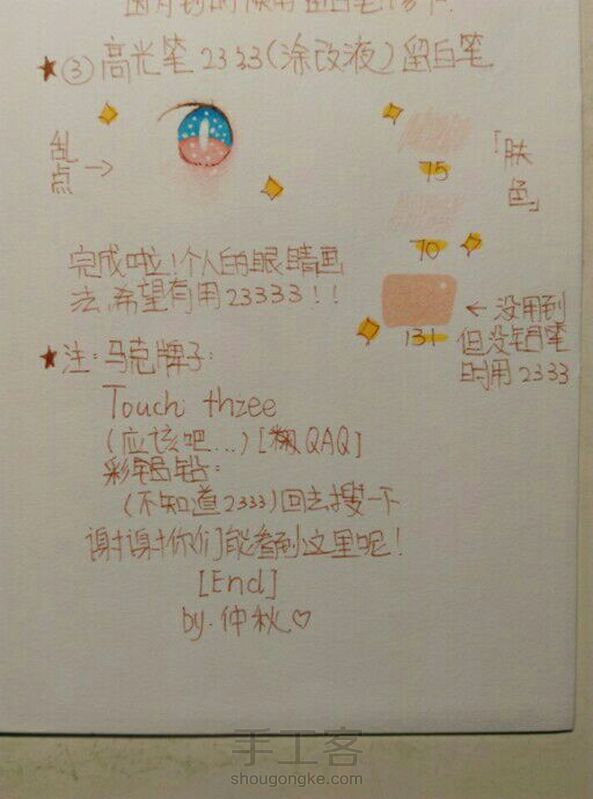 ③高光笔2333(涂改液)留白笔
乱点→
「肤色」
75
70
完成啦!个人的眼睛画
法,希望有用23333!!
131
←没用到
但没铅笔
时用2333
注:马克牌子:
Touch thzee
(应该吧...)[糊QAQ]
彩铅:
(不知道2333)回去搜一下
谢谢你们能看到这里呢!
[End]
by.仲秋♡
手工客
shougongke.com